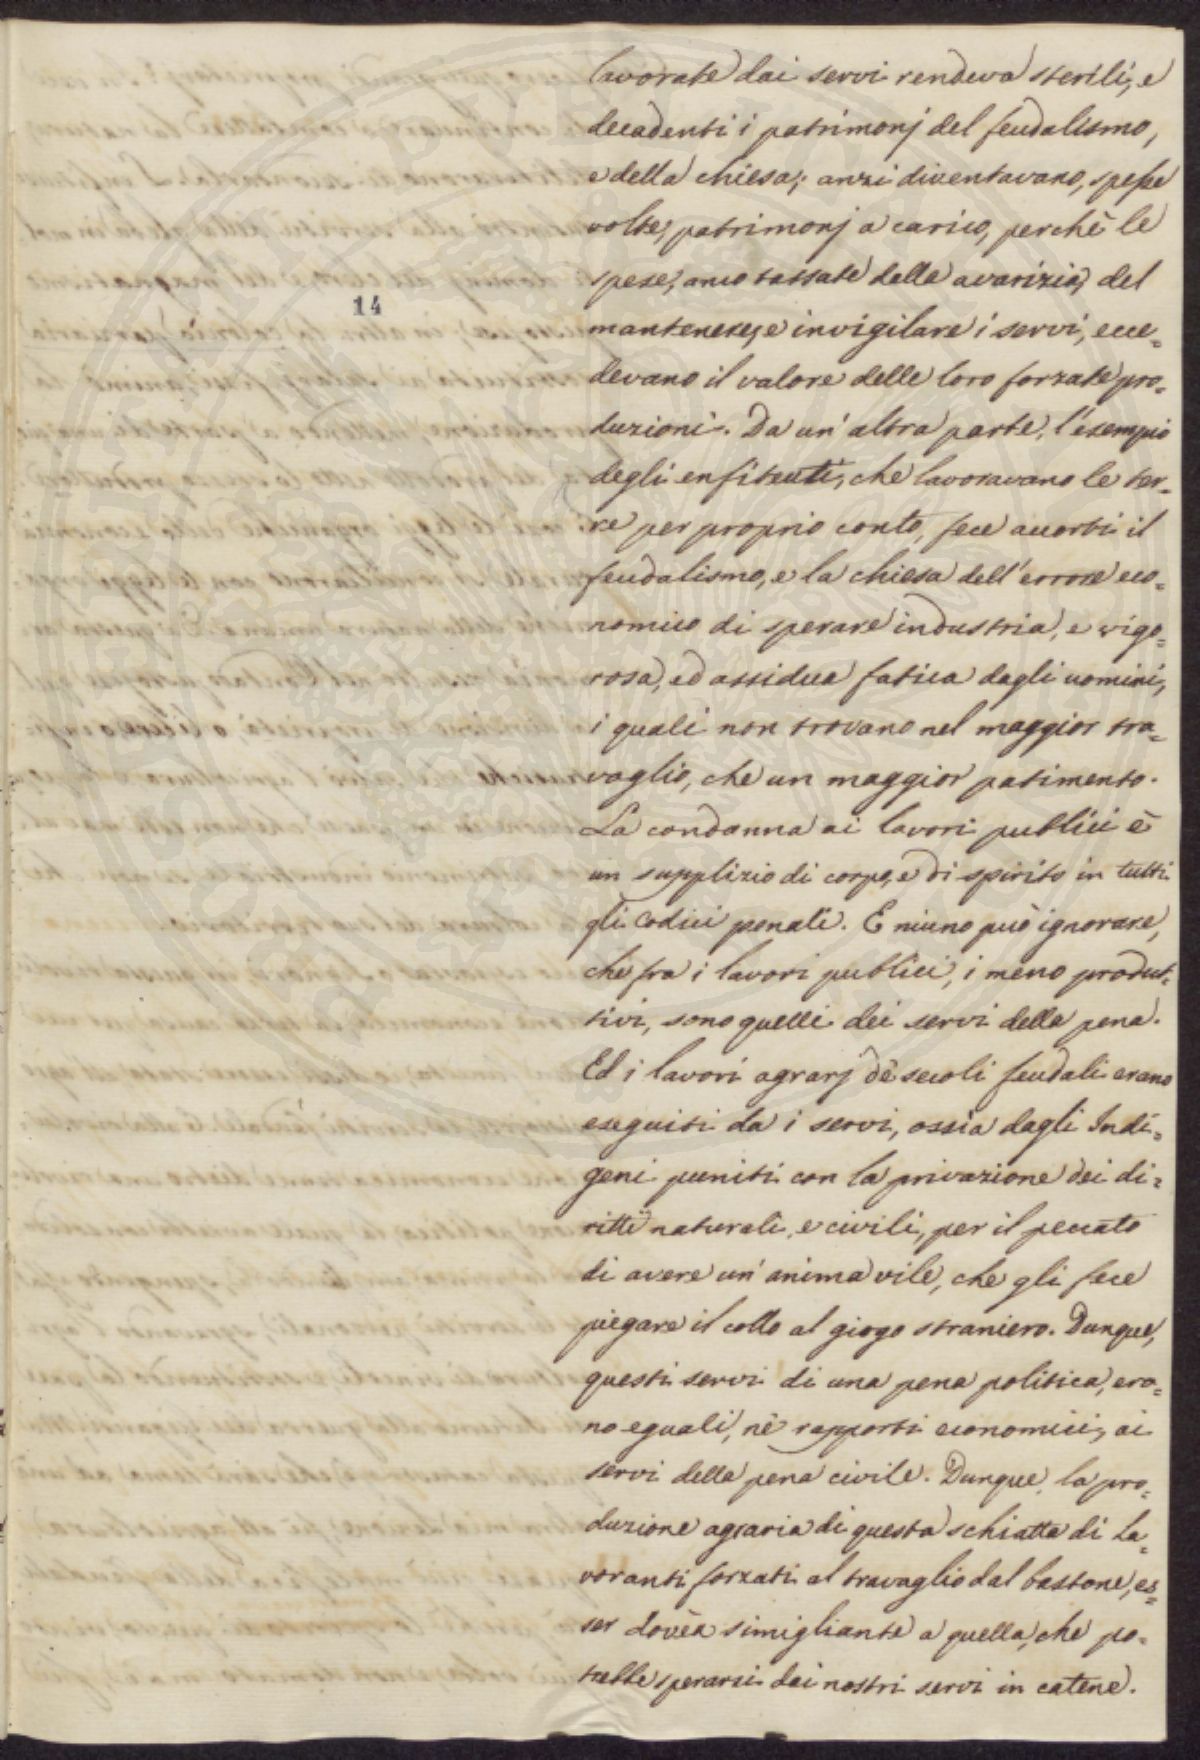 lavorate dai servi rendeva sterili, e
decadenti i patrimonj del feudalismo,
e della chiesa; anzi diventavano, spesse
volte, patrimonj a carico, perchè le
spese, anco tassate dalla avarizia, del
14
mantenere, e invigilare i servi, ecce=
devano il valore delle loro forzate pro=
duzioni. Da un' altra parte, l'esempio
degli enfiteuti, che lavoravano le ter=
re per proprio conto, fece accorti il
feudalismo, e la chiesa dell'errore eco=
nomico di sperare industria, e vigo=
rosa, ed assidua fatica dagli uomini,
i quali non trovano nel maggior tra=
vaglio, che un maggior patimento.
La condanna ai lavori publici è
un supplizio di corpo, e di spirito in tutti
gli Codici penali. E niuno può ignorare,
che fra i lavori publici, i meno produt=
tivi, sono quelli dei servi della pena.
Ed i lavori agrarj dè secoli feudali erano
eseguiti da i servi, ossia dagli Indi=
geni puniti con la privazione dei di=
ritti naturali, e civili, per il peccato
di avere un' anima vile, che gli fece
piegare il collo al giogo straniero. Dunque,
questi servi di una pena politica, era=
no eguali, nè rapporti economici, ai
servi della pena civile. Dunque, la pro=
duzione agraria di questa schiatta di la=
voranti forzati al travaglio dal bastone, es=
ser dovèa simigliante a quella, che po=
trebbe sperarsi dai nostri servi in catene.